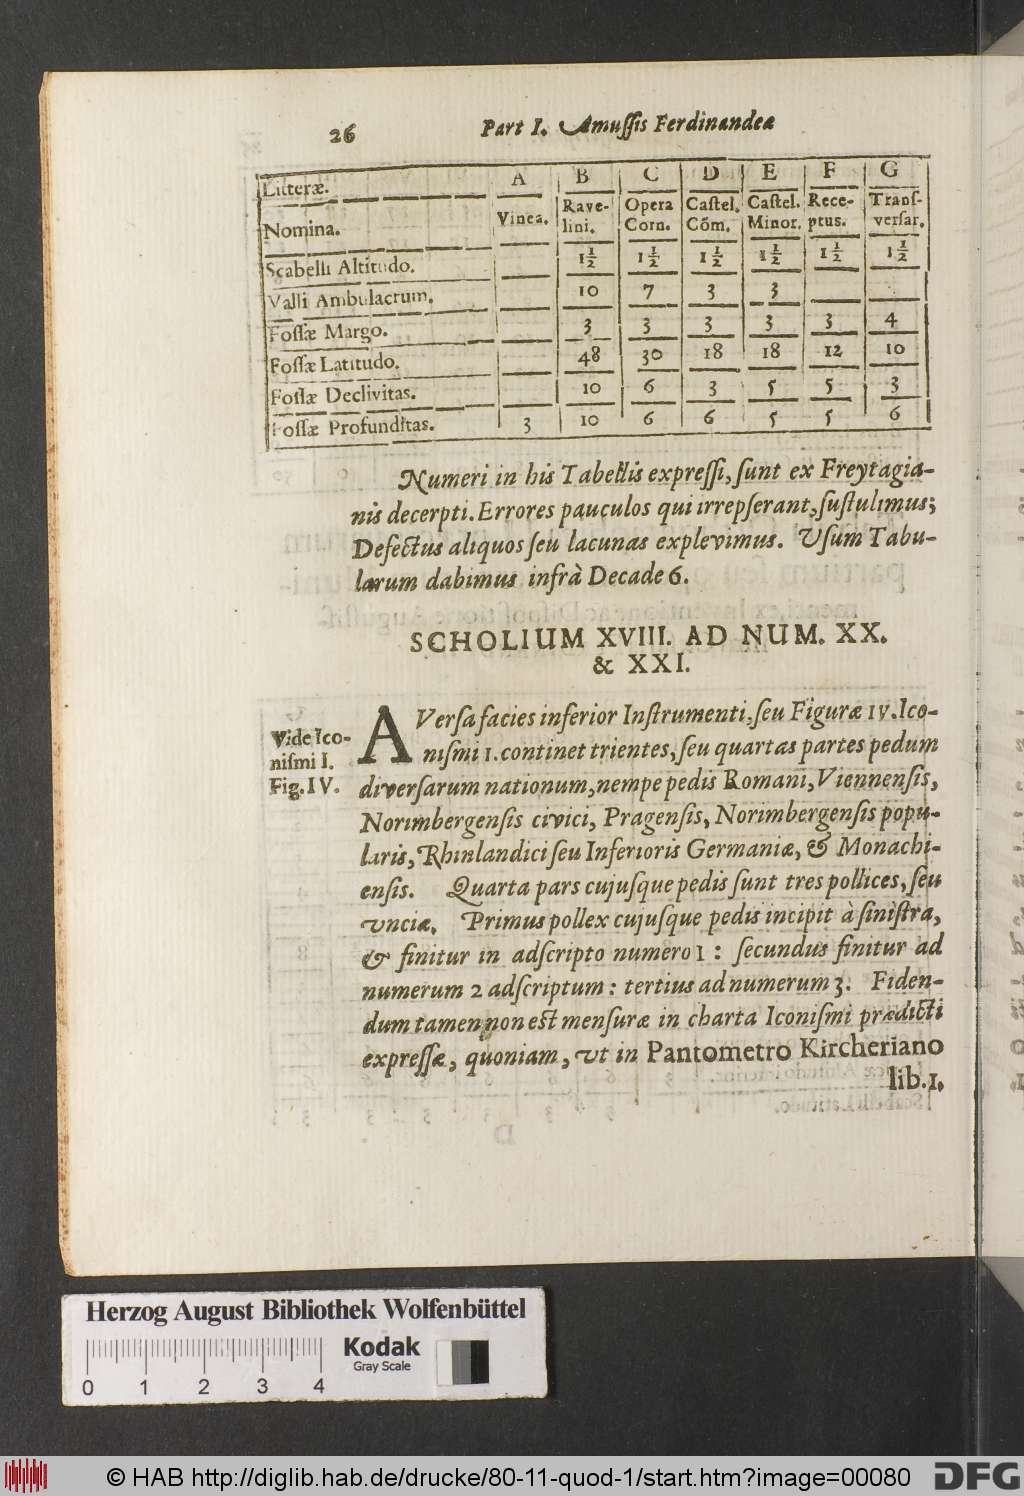 26 Part I. Amussis Ferdinandeæ
Litteræ. A B C D E F G
Nomina. Vinea. Rave-lini. Opera Corn. Castel. Cõm. Castel. Minor. Rece-ptus. Transversar.
Scabelli Altitudo. 1½ 1½ 1½ 1½ 1½ 1½
Valli Ambulacrum. 10 7 3 3
Fossæ Margo. 3 3 3 3 3 4
Fossæ Latitudo. 48 30 18 18 12 10
Fossæ Declivitas. 10 6 3 5 5 3
Fossæ Profunditas. 3 10 6 6 5 5 6
Numeri in his Tabellis expressi, sunt ex Freytagia-
nis decerpti. Errores pauculos qui irrepserant, sustulimus;
Defectus aliquos seu lacunas explevimus. Usum Tabu-
larum dabimus infrà Decade 6.
SCHOLIUM XVIII. AD NUM. XX.
& XXI.
Vide Ico-
nismi I.
Fig. IV.
AVersa facies inferior Instrumenti, seu Figuræ IV. Ico-
nismi 1. continet trientes, seu quartas partes pedum
diversarum nationum, nempe pedis Romani, Viennensis,
Norimbergensis civici, Pragensis, Norimbergensis popu-
laris, Rhinlandici seu Inferioris Germaniæ, & Monachi-
ensis. Quarta pars cujusque pedis sunt tres pollices, seu
vnciæ. Primus pollex cujusque pedis incipit à sinistra,
& finitur in adscripto numero 1 : secundus finitur ad
numerum 2 adscriptum : tertius ad numerum 3. Fiden-
dum tamen non est mensuræ in charta Iconismi prædicti
expressæ, quoniam, vt in Pantometro Kircheriano
lib. 1.
Herzog August Bibliothek Wolfenbüttel
Kodak
Gray Scale
0 1 2 3 4
© HAB http://diglib.hab.de/drucke/80-11-quod-1/start.htm?image=00080
DFG